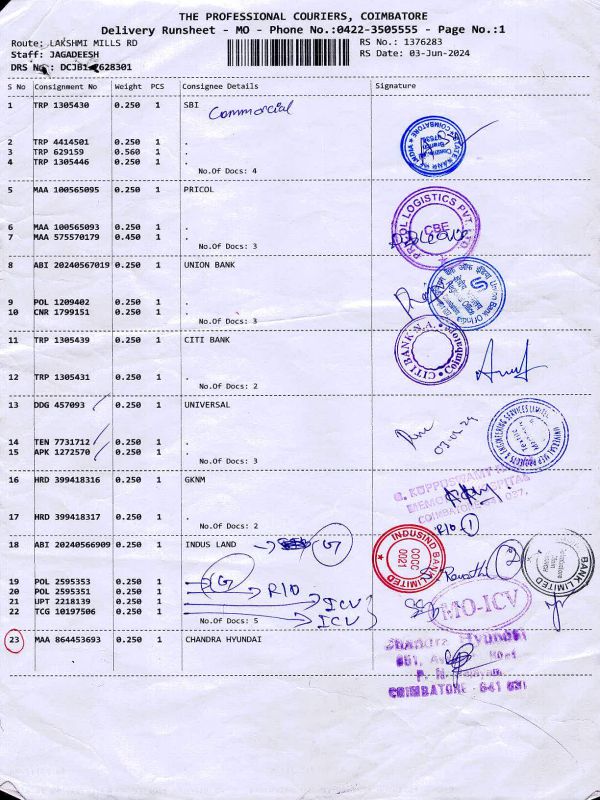 THE PROFESSIONAL COURIERS, COIMBATORE
Delivery Runsheet - MO - Phone No.:0422-3505555 - Page No.:1
Route: LAKSHMI MILLS RD
RS No.: 1376283
Staff: JAGADEESH
RS Date: 03-Jun-2024
DRS No.: 628301
S No Consignment No Weight PCS Consignee Details Signature
1 TRP 1305430 0.250 1 SBI
Commercial
2 TRP 4414501 0.250 1 .
3 TRP 629159 0.560 1 .
4 TRP 1305446 0.250 1 .
No.Of Docs: 4
5 MAA 100565095 0.250 1 PRICOL
PRICOL LOGISTICS PVT. LTD.
CBE
6 MAA 100565093 0.250 1 .
7 MAA 575570179 0.450 1 .
No.Of Docs: 3
8 ABI 20240567019 0.250 1 UNION BANK
Union Bank Of India
9 POL 1209402 0.250 1 .
10 CNR 1799151 0.250 1 .
No.Of Docs: 3
11 TRP 1305439 0.250 1 CITI BANK
CITI BANK N.A. Coimbatore
12 TRP 1305431 0.250 1 .
No.Of Docs: 2
13 DDG 457093 0.250 1 UNIVERSAL
14 TEN 7731712 0.250 1 .
15 APK 1272570 0.250 1 .
No.Of Docs: 3
16 HRD 399418316 0.250 1 GKNM
G. KUPPUSWAMY
MEMORIAL HOSPITAL
COIMBATORE
17 HRD 399418317 0.250 1 .
No.Of Docs: 2
R/O 1
18 ABI 20240566909 0.250 1 INDUS LAND
G
INDUSIND BANK LIMITED
COCC
0021
BANK LIMITED
19 POL 2595353 0.250 1 G
20 POL 2595351 0.250 1 R/O
21 UPT 2218139 0.250 1 ICV
22 TCG 10197506 0.250 1 ICV
No.Of Docs: 5
MO-ICV
23 MAA 864453693 0.250 1 CHANDRA HYUNDAI
Chandra Hyundai
COIMBATORE - 641 031